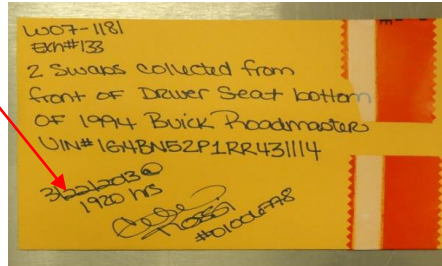 W07-1181
Exh#133
2 Swabs collected from
front of Driver Seat bottom
OF 1994 Buick Roadmaster
VIN# 1G4BN52P1RR431114
3/22/2013 @
1920 hrs
Rossi